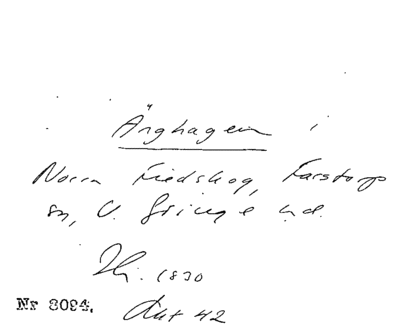 Änghagen i
Norra Fredskog, Farstorps
sn, V. Göinge hd.
1830
Nr 8094. Akt 42